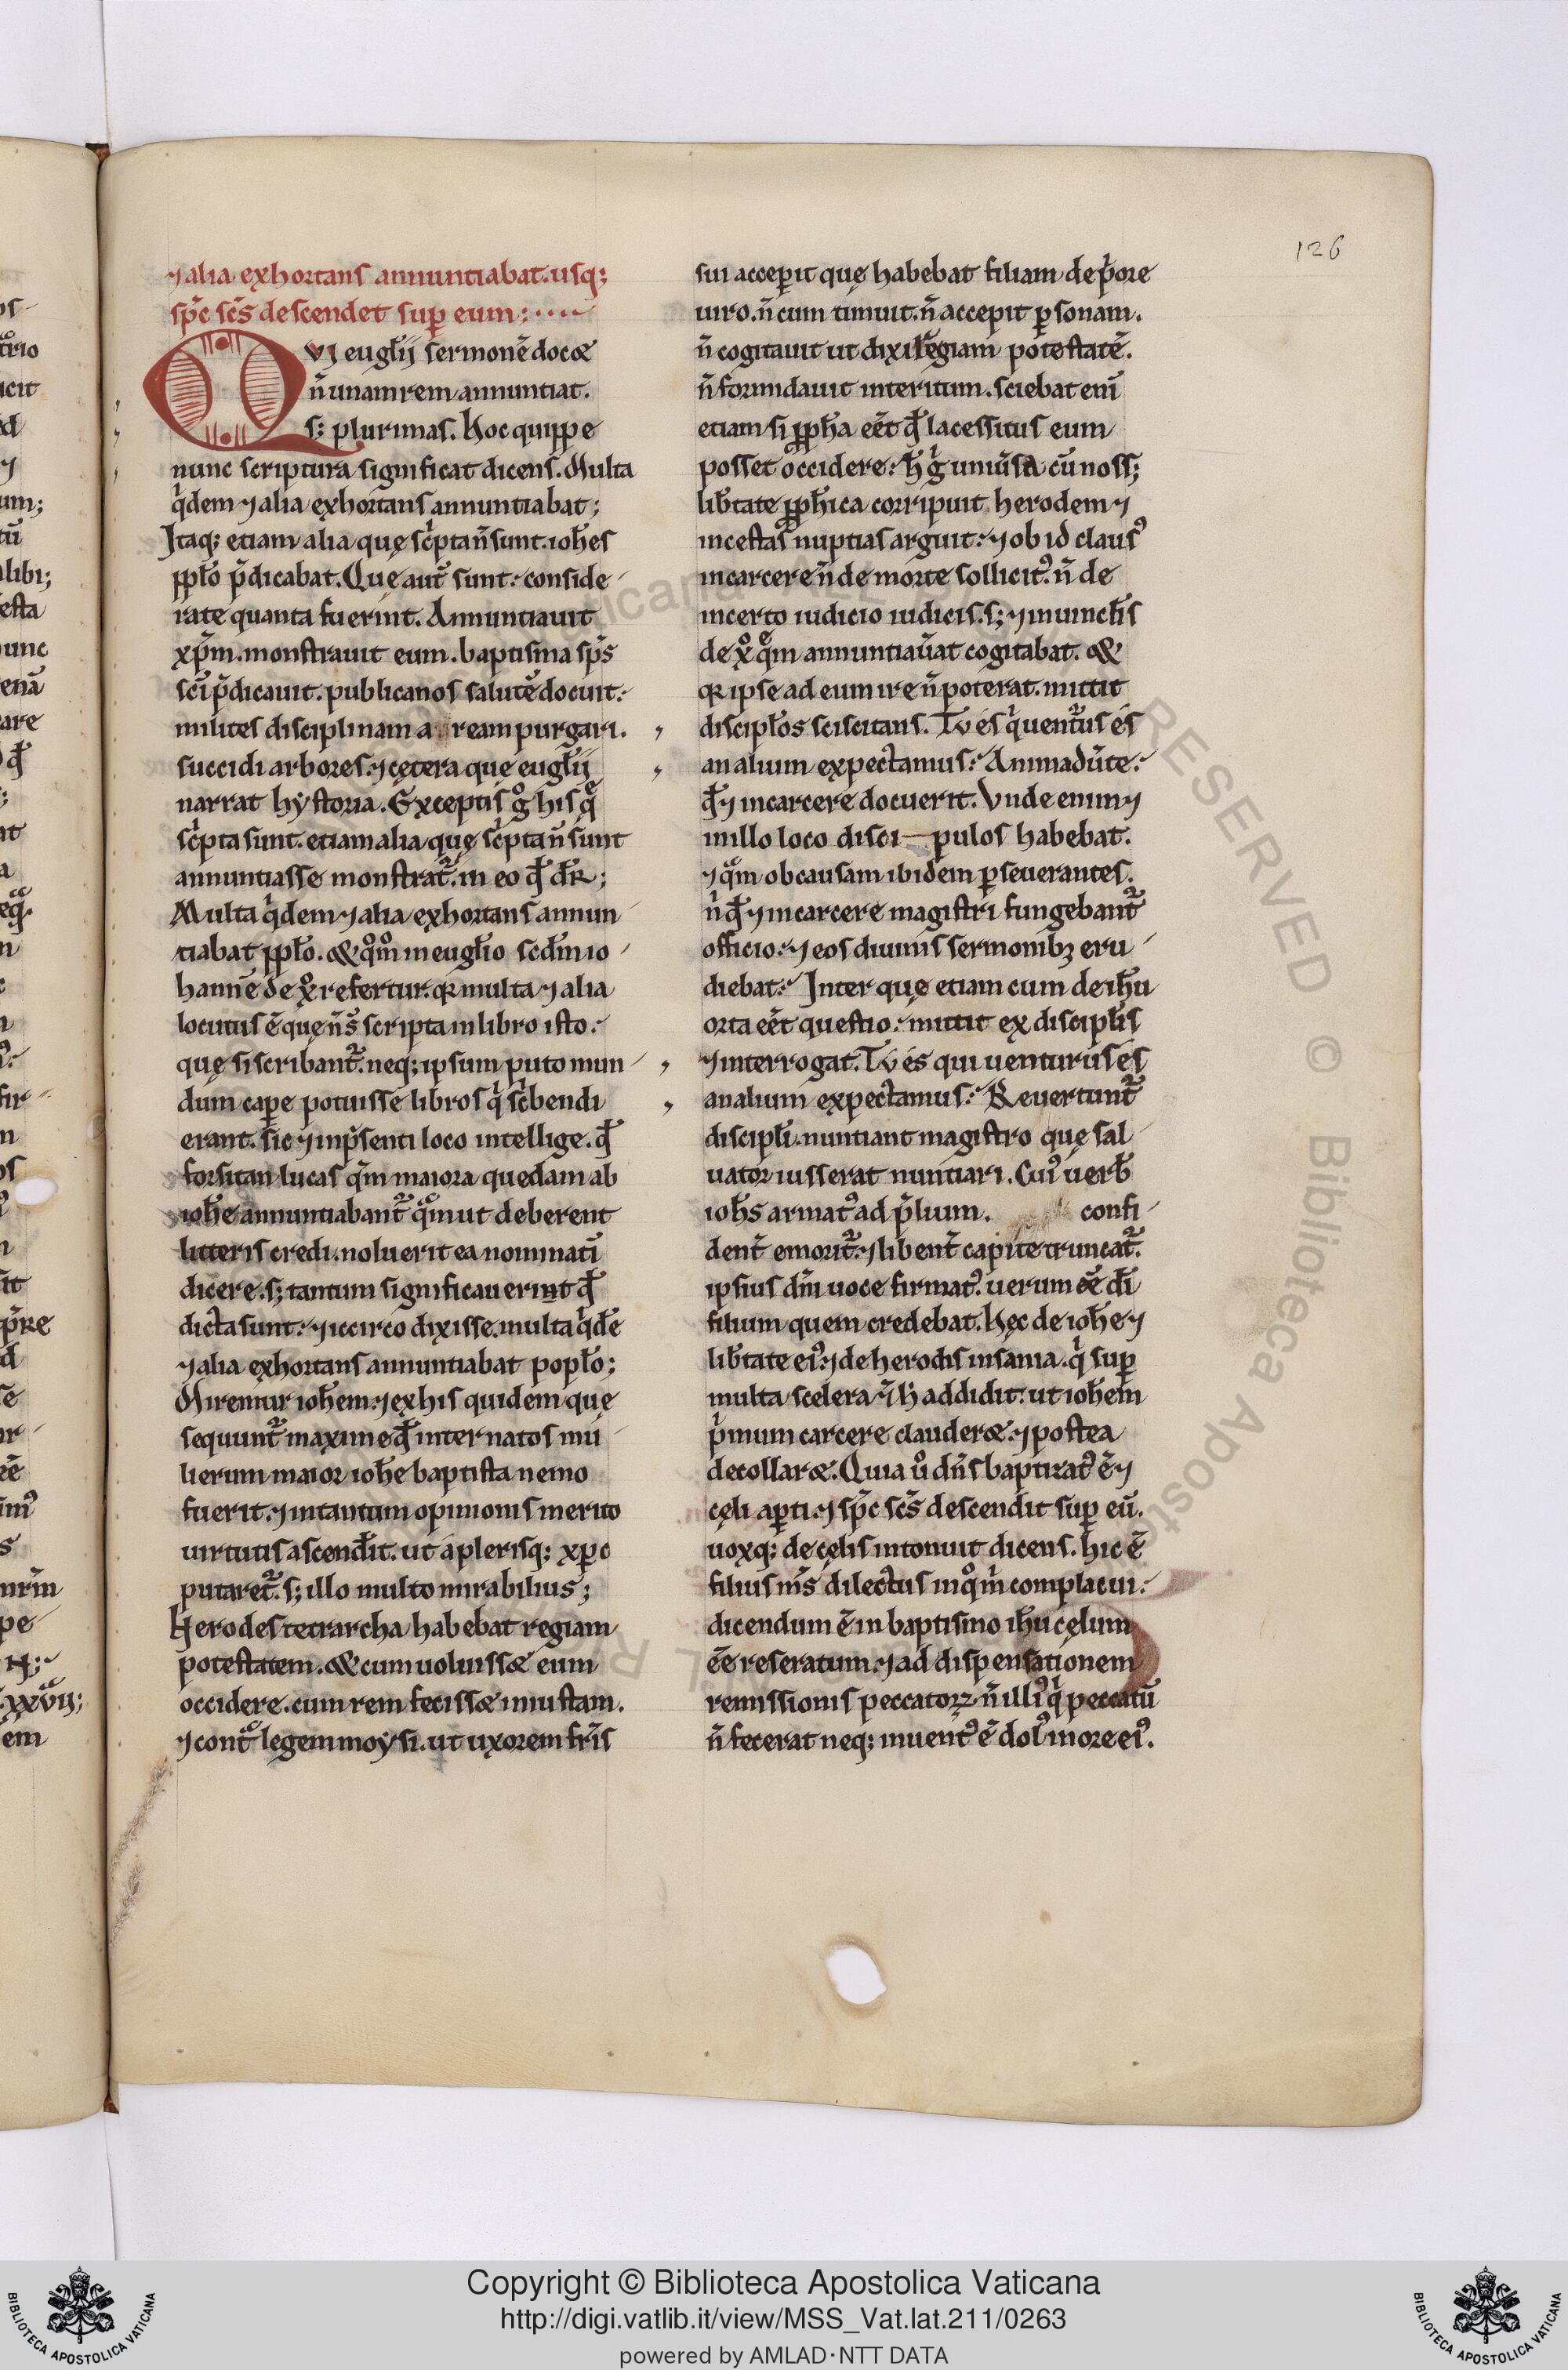 126
⁊ alia exhortans annuntiabat. usq;
sp̄c sc̄s descendet sup̲ eum:....
QVJ eugl̄ij sermonē docet
n̄ unam rem annuntiat.
s; plurimas. Hoc quippe
nunc scriptura significat dicens. Multa
q̇dem ⁊ alia exhortans annuntiabat;
Itaq; etiam alia quę sċpta n̄ sunt. ioħes
ppl̄o p̄dicabat. Quę aut̄ sunt: conside-
rate quanta fuerint. Annuntiauit
xp̄m. monstrauit eum. baptisma sp̄s
sc̄i p̄dicauit. publicanos salutē docuit.
milites disciplinam a reampurgari.
succidi arbores. ⁊ cętera que eugl̄ij
narrat hẏstoria. Exceptis g̊ his q̄
sċpta sunt. etiam alia quę sċpta n̄ sunt
annuntiasse monstrat̄. in eo qđ đR;
Multa q̇dem ⁊ alia exhortans annun-
tiabat ppl̄o. & qm̊ in eugl̄io scđm io-
hannē de xp̊ refertur. qr multa ⁊ alia
locutus ē quę n̄ s̄ scripta in libro isto.
quę si scribant̄. neq; ipsum puto mun-
dum cape potuisse libros q̇ sċbendi
erant. sic ⁊ inp̄senti loco intellige. qđ
forsitan lucas qm̄ maiora quedam ab
ioħe annuntiabant̄ qm̄ ut deberent
litteris credi. noluerit ea nominatī
dicere. s; tantum significauerint qđ
dicta sunt: ⁊ iccirco dixisse. multa q̇dē
⁊ alia exhortans annuntiabat popl̄o;
Miremur ioħem. ⁊ ex his quidem quę
sequunt̄ maxime qđ inter natos mu
lierum maior ioħe baptista nemo
fuerit. ⁊ intantum opinionis merito
uirtutis ascendit. ut a plerisq; xp̄c
putaret̄. s; illo multo mirabilius;
Herodes tetrarcha habebat regiam
potestatem. & cum uoluisset eum
occidere. cum rem fecisset iniustam.
⁊ cont̄ legem moẏsi. ut uxorem fr̄is
sui acceperit quę habebat filiam de p̄ore
uiro. n̄ eum timuit. n̄ accepit p̲sonam.
n̄ cogitauit ut dixi regiam potestatē.
n̄ formidauit interitum. sciebat enī
etiam si ppħa eēt qđ lacessitus eum
posset occidere: ħ g̊ uniūsa cū noss;
lib̄tate ppħica corripuit herodem ⁊
incestas nuptias arguit: ⁊ ob id clausꝰ
in carcere n̄ de morte sollicitꝰ. n̄ de
incerto iudicio iudicis. s; ⁊ inuinclis
de xp̊ qm̄ annuntiau̅at cogitabat. &
qr ipse ad eum ire n̄ poterat. mittit
discipl̄os sciscitans. Tv és q̇ uent̄us és
an alium expectamus: Animadūte:
qđ ⁊ in carcere docuerit. Vnde enim ⁊
in illo loco disci—pulos habebat.
⁊ qm̄ ob causam ibidem p̲seuerantes.
n̊ qđ ⁊ in carcere magistri fungebant̄
officio: ⁊ eos diuinis sermonibꝫ eru-
diebat: Inter que etiam cum de iħu
orta eēt questio: mittit ex discipl̄is
⁊ interrogat. Tv és qui uenturus és
an alium expectamus: Reuertunt̄
discipl̄i. nuntiant magistro quę sal-
uator iusserat nuntiari. Cuiꝰ uerb̄
ioħs armatꝰ ad p̄lium. confi-
dent̄ emorit̄. ⁊ libent̄ capite truncat̄.
ipsius dm̄ uoce firmatꝰ. uerum eē đi
filium quem credebat. Hęc de ioħe ⁊
lib̄tate eiꝰ. ⁊ de herodis insania. q̇ sup̲
multa scelera ⁊ ħ addidit. ut ioħem
ṗmum carcere clauderet. ⁊ postea
decollaret. Quia ů dn̄s baptizatꝰ ē ⁊
cęli ap̲ti. ⁊ sp̄c sc̄s descendit sup̲ eū.
uoxq; de cęlis intonuit dicens. hic ē
filius ms̄ dilectus in qm̊ complacui:
dicendum ē in baptismo iħu cęlum
eē reseratum. ⁊ ad dispensationem
remissionis peccatorꝝ n̄ illiꝰ q̇ peccatū
n̄ fecerat neq; inuentꝰ ē dolꝰ in ore eiꝰ.
Copyright © Biblioteca Apostolica Vaticana
http://digi.vatlib.it/view/MSS_Vat.lat.211/0263
powered by AMLAD·NTT DATA